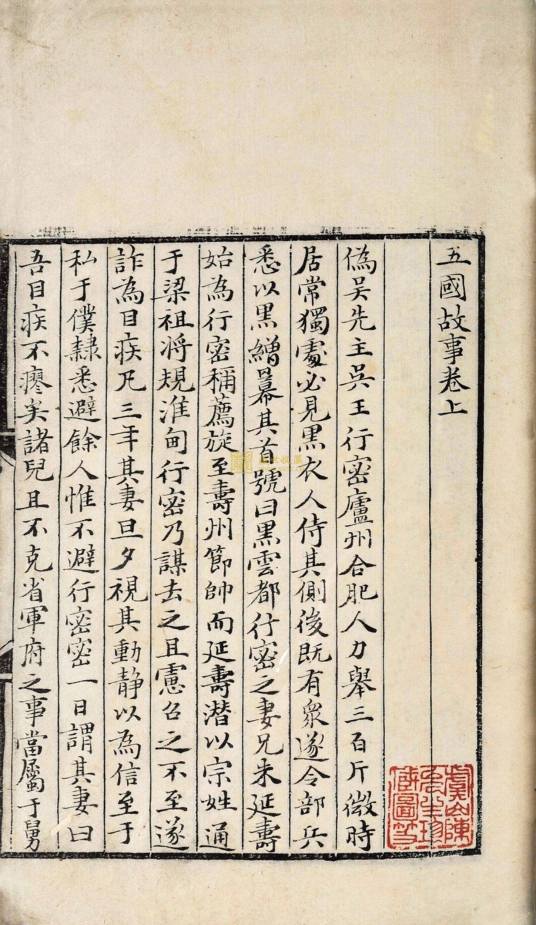 五國故事卷上
偽吳先主吳王行密廬州合肥人力舉三百斤微時
居常獨處必見黑衣人侍其側後既有衆遂令部兵
悉以黑繒幕其首號曰黑雲都行密之妻兄朱延壽
始為行密稱薦旋至壽州節帥而延壽潜以宗姓通
于梁祖将規淮甸行密乃謀去之且慮召之不至遂
詐為目疾凡三年其妻旦夕視其動静以為信至于
私于僕隸悉避餘人惟不避行密密一日謂其妻曰
吾目疾不瘳矣諸兒且不克省軍府之事當屬于舅
虞山陳